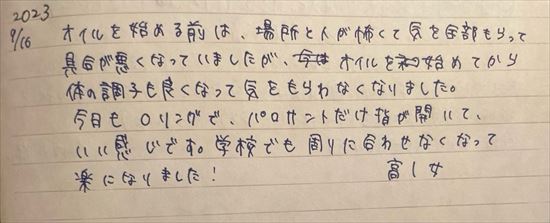 2023
9/16
オイルを始める前は、場所と人が怖くて気を全部もらって
具合が悪くなっていましたが、オイルを始めてから
体の調子も良くなって気をもらわなくなりました。
今日も Oリングで、パロサントだけ指が開いて、
いい感じです。学校でも周りに合わせなくなって
楽になりました!
高1女